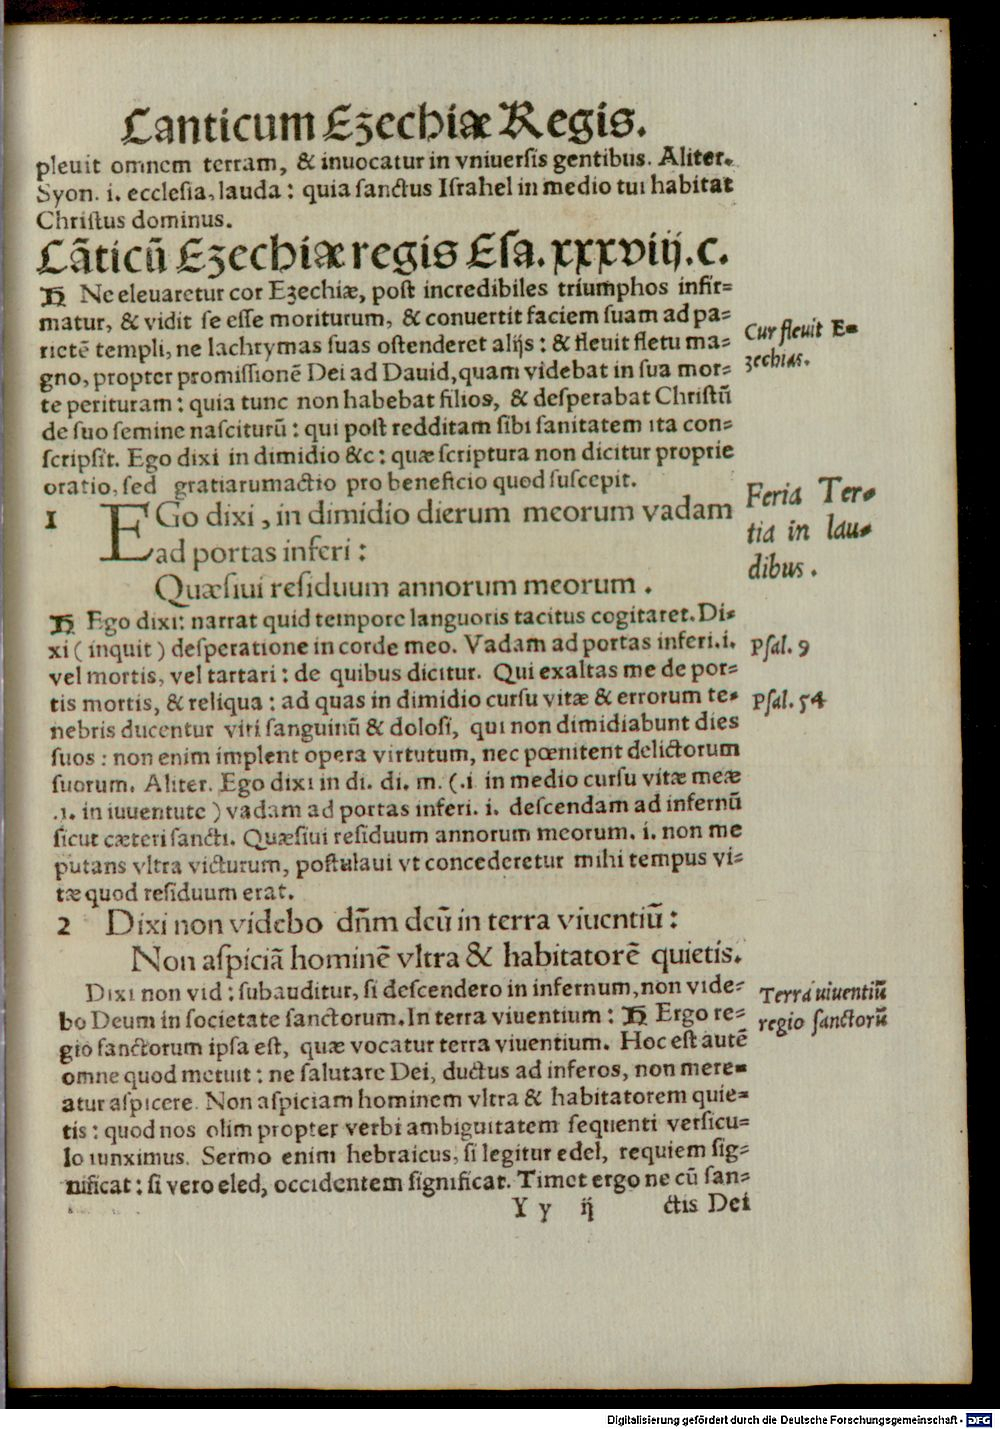 Canticum Ezechiæ Regis.
pleuit omnem terram, & inuocatur in vniuersis gentibus. Aliter.
Syon. i. ecclesia, lauda: quia sanctus Israhel in medio tui habitat
Christus dominus.
Cãticũ Ezechiæ regis Esa. xxxviij. c.
H Ne eleuaretur cor Ezechiæ, post incredibiles triumphos infir=
matur, & vidit se esse moriturum, & conuertit faciem suam ad pa=
rictẽ templi, ne lachrymas suas ostenderet alijs: & fleuit fletu ma=
gno, propter promissionẽ Dei ad Dauid, quam videbat in sua mor=
te perituram: quia tunc non habebat filios, & desperabat Christũ
de suo semine nasciturũ: qui post redditam sibi sanitatem ita con=
scripsit. Ego dixi in dimidio &c: quæ scriptura non dicitur proprie
oratio, sed gratiarumactio pro beneficio quod suscepit.
Cur fleuit E=
zechias.
1 EGo dixi, in dimidio dierum meorum vadam
ad portas inferi:
Quæsiui residuum annorum meorum.
Feria Ter=
tia in lau=
dibus.
H Ego dixi: narrat quid tempore languoris tacitus cogitaret. Di=
xi (inquit) desperatione in corde meo. Vadam ad portas inferi. i.
vel mortis, vel tartari: de quibus dicitur. Qui exaltas me de por=
tis mortis, & reliqua: ad quas in dimidio cursu vitæ & errorum te=
nebris ducentur viri sanguinũ & dolosi, qui non dimidiabunt dies
suos: non enim implent opera virtutum, nec pœnitent delictorum
suorum. Aliter. Ego dixi in di. di. m. (.i in medio cursu vitæ meæ
.i. in iuuentute) vadam ad portas inferi. i. descendam ad infernũ
sicut cæteri sancti. Quæsiui residuum annorum meorum. i. non me
putans vltra victurum, postulaui vt concederetur mihi tempus vi=
tæ quod residuum erat.
Psal. 9
Psal. 54
2 Dixi non videbo dñm deũ in terra viuentiũ:
Non aspiciã hominẽ vltra & habitatorẽ quietis.
Dixi non vid: subauditur, si descendero in infernum, non vide=
bo Deum in societate sanctorum. In terra viuentium: H Ergo re=
gio sanctorum ipsa est, quæ vocatur terra viuentium. Hoc est autẽ
omne quod metuit: ne salutare Dei, ductus ad inferos, non mere=
atur aspicere. Non aspiciam hominem vltra & habitatorem quie=
tis: quod nos olim propter verbi ambiguitatem sequenti versicu=
lo iunximus. Sermo enim hebraicus, si legitur edel, requiem sig=
nificat: si vero eled, occidentem significat. Timet ergo ne cũ san=
Terra uiuentiũ
regio sanctorũ
Y y ij ctis Dei
Digitalisierung gefördert durch die Deutsche Forschungsgemeinschaft - DFG